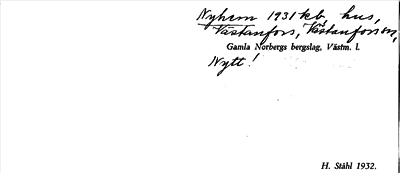 Nyhem 1931 kb, hus,
Västanfors, Västanforssn,
Gamla Norbergs bergslag, Västm. l.
Nytt!
H. Ståhl 1932.